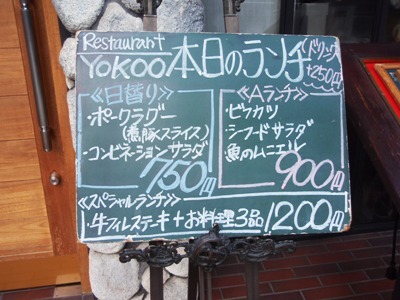 Restaurant
YOKOO. 本日のランチ (ドリンク +250円)
≪日替り≫
・ポークラグー
(煮豚スライス)
・コンビネーションサラダ
750円
≪Aランチ≫
・ビフカツ
・シーフードサラダ
・魚のムニエル
900円
≪スペシャルランチ≫
・牛フィレステーキ+お料理3品 1200円